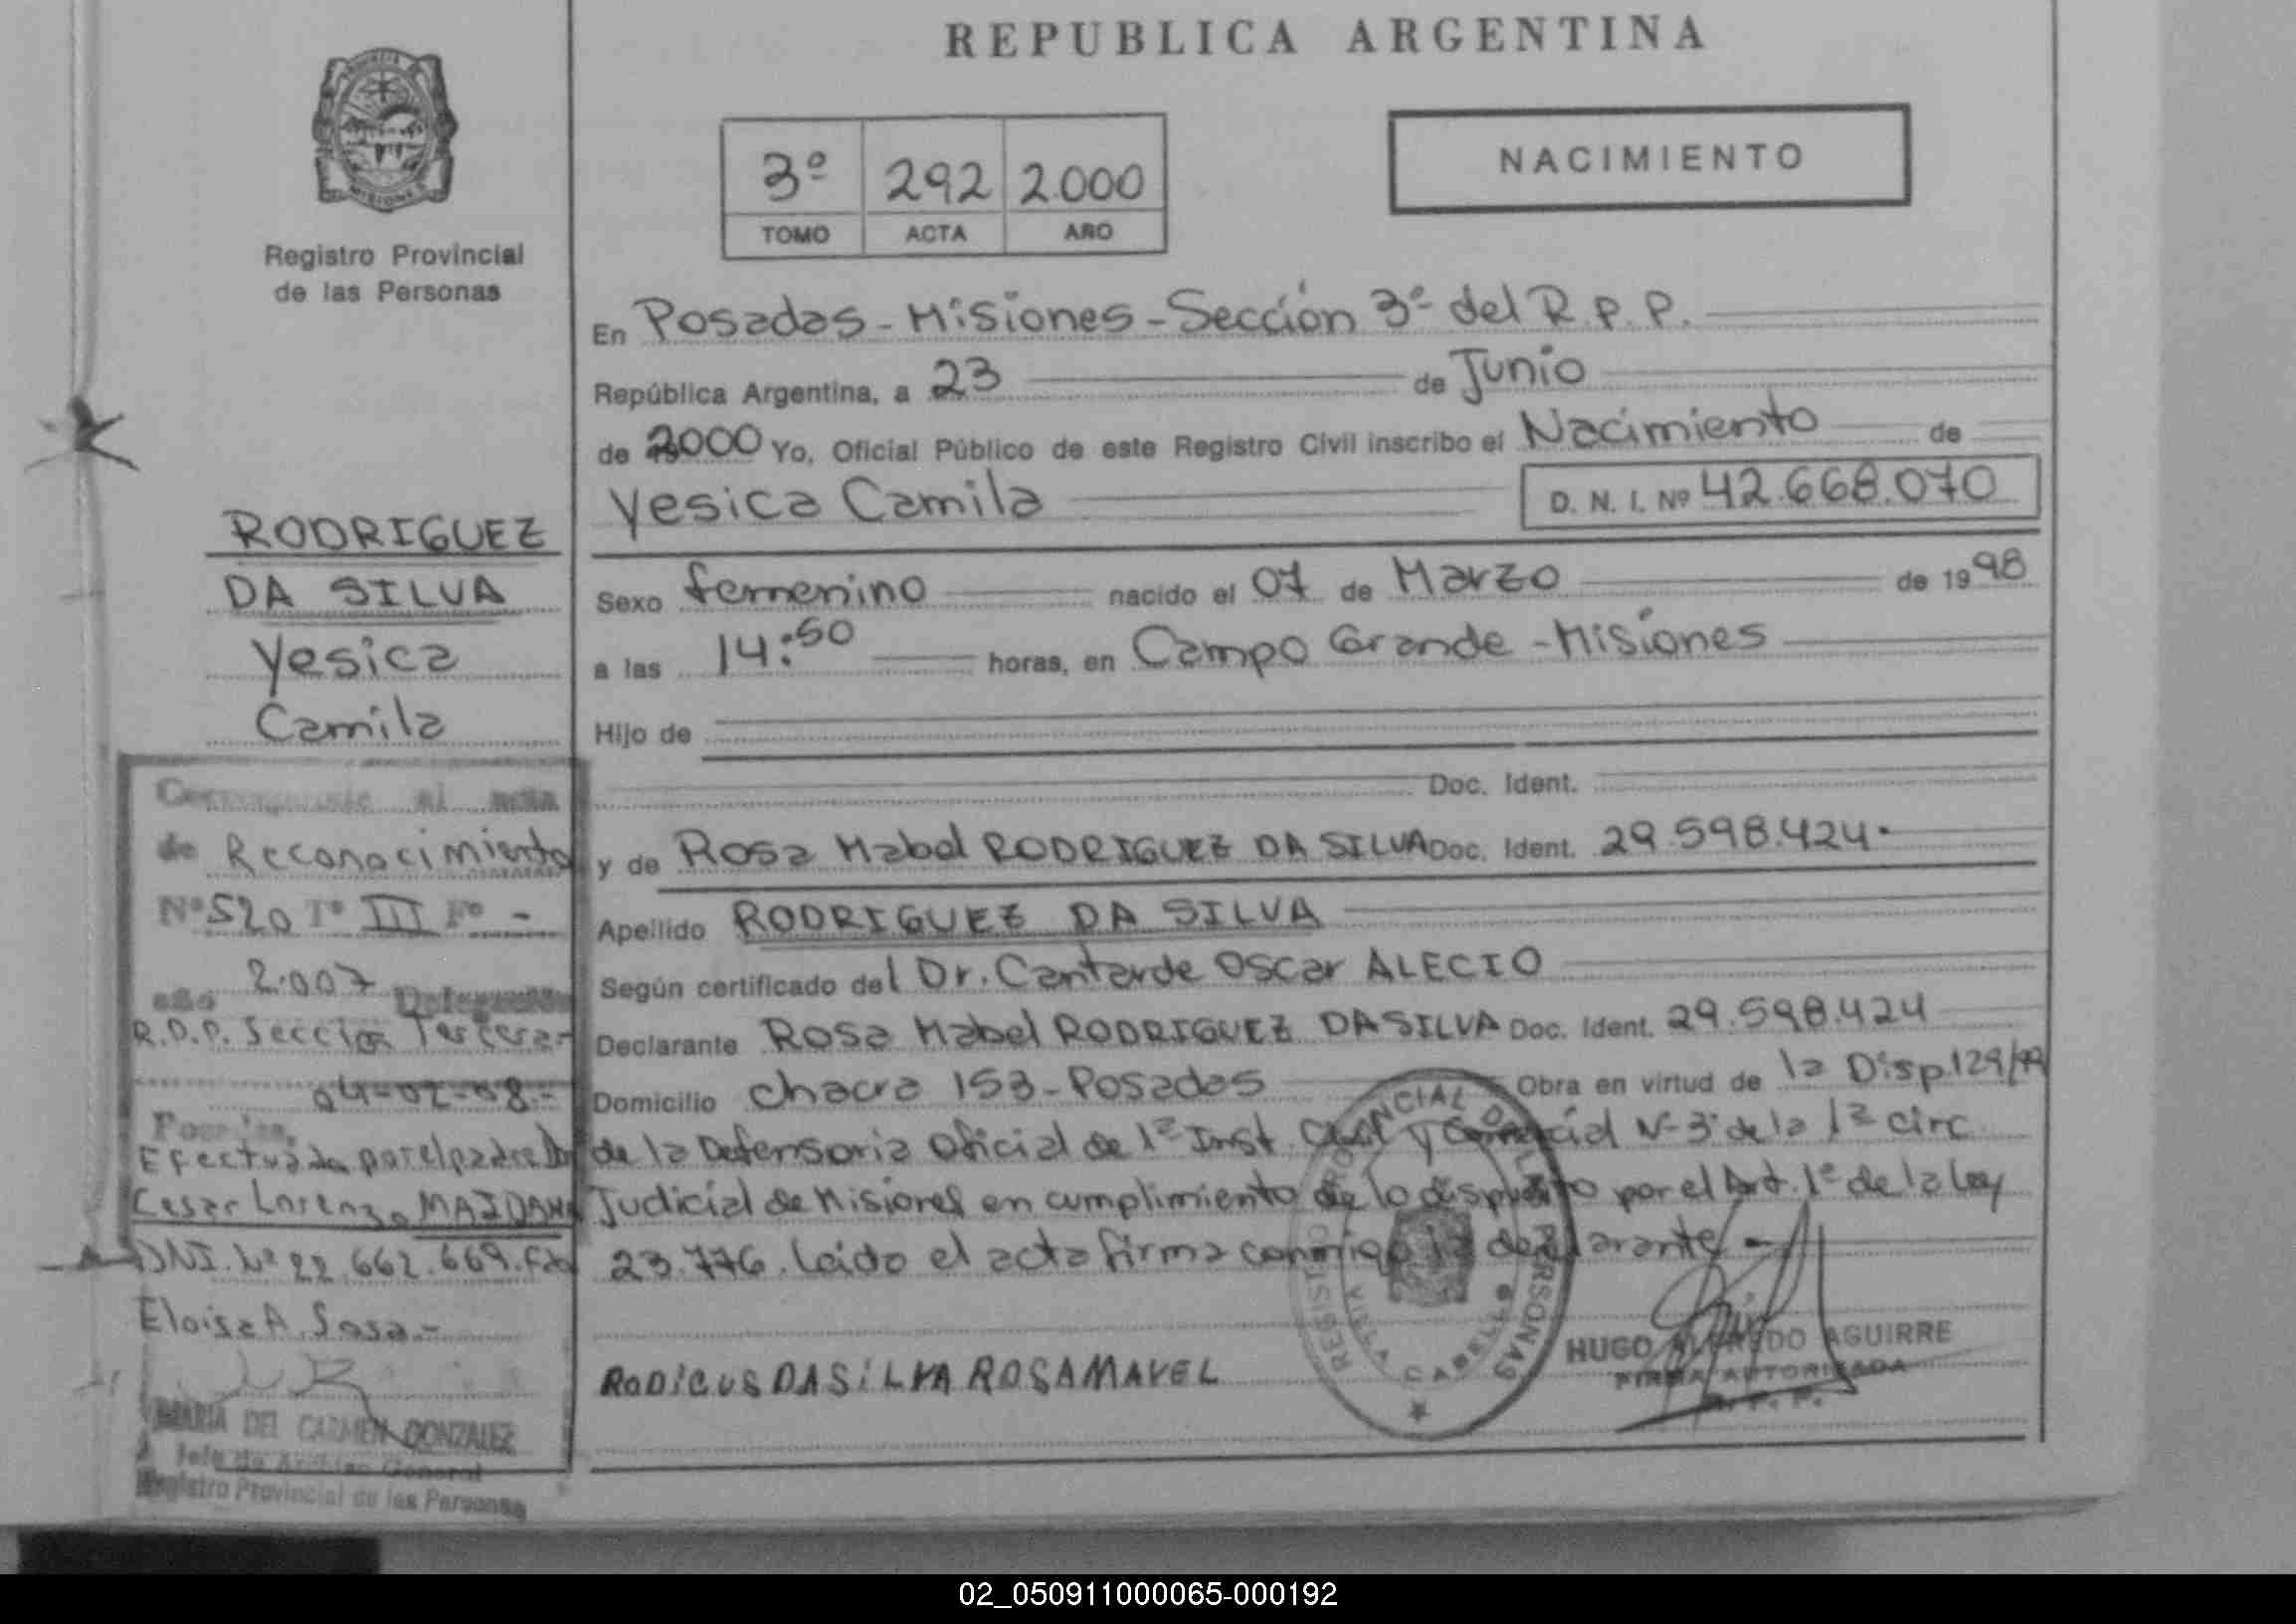 REPUBLICA ARGENTINA
NACIMIENTO
3º 292 2.000
TOMO ACTA AÑO
Registro Provincial
de las Personas
En Posadas - Misiones - Sección 3º del R.P.P.
República Argentina, a 23 de Junio
de 2000 Yo, Oficial Público de este Registro Civil inscribo el Nacimiento de
Yesica Camila D. N. I. Nº 42.668.070
Sexo femenino nacido el 07 de Marzo de 1998
a las 14:50 horas, en Campo Grande - Misiones
Hijo de
Doc. Ident.
y de Rosa Mabel RODRIGUEZ DA SILVA Doc. Ident. 29.598.424.
Apellido RODRIGUEZ DA SILVA
Según certificado del Dr. Cantarde Oscar ALECIO
Declarante Rosa Mabel RODRIGUEZ DA SILVA Doc. Ident. 29.598.424
Domicilio chacra 153 - Posadas Obra en virtud de la Disp 129/99
de la Defensoria Oficial de 1ª Inst. Civil y Comercial Nº 3 de la 1ª circ
Judicial de Misiones en cumplimiento de lo dispuesto por el Art. 1º de la Ley
23.776. Leido el acta firma conmigo la declarante.-
RODICUS DASiLVA ROSAMAVEL
HUGO ALFREDO AGUIRRE
FIRMA AUTORIZADA
R. P. P.
REGISTRO PROVINCIAL DE LAS PERSONAS
VILLA CABELLO
RODRIGUEZ
DA SILVA
Yesica
Camila
Corresponde al acta
de Reconocimiento
Nº 520 Tº III Fº -
año 2.007 Delegación
R.P.P. Seccion Tercera-
04-02-08.-
Posadas,
Efectuada por el padre
Cesar Lorenzo MAIDANA
DNI. Nº 22.662.669.
Eloisa A. Sosa.-
MARIA DEL CARMEN GONZALEZ
Jefe de Archivo General
Registro Provincial de las Personas
02_050911000065-000192